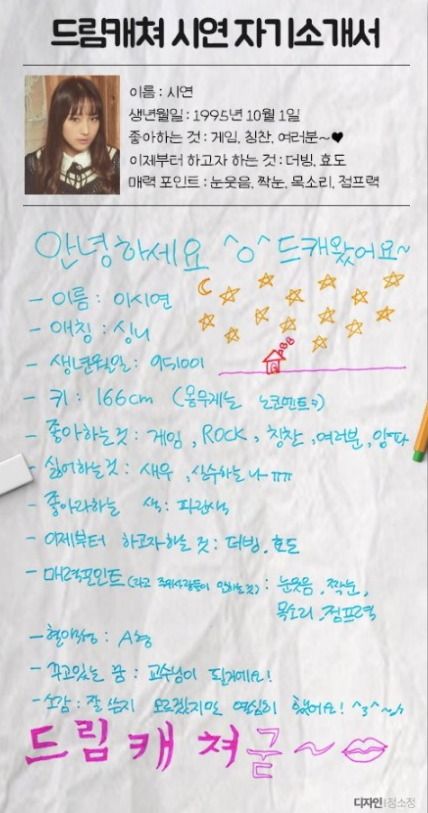 드림캐쳐 시연 자기소개서
이름 : 시연
생년월일 : 1995년 10월 1일
좋아하는 것 : 게임, 칭찬, 여러분~♥
이제부터 하고자 하는 것 : 더빙, 효도
매력 포인트 : 눈웃음, 짝눈, 목소리, 점프력
안녕하세요 ^o^ 드캐왔어요~
- 이름 : 이시연
- 애칭 : 싱니
- 생년월일 : 951001
- 키 : 166cm (몸무게는 노코멘트?)
- 좋아하는것 : 게임, ROCK, 칭찬, 여러분, 양파
- 싫어하는것 : 새우, 실수하는 나 ㅠㅠ
- 좋아라하는 색 : 파란색
- 이제부터 하고자하는 것 : 더빙. 효도
- 매력포인트 (라고 주위사람들이 말하는것) : 눈웃음, 짝눈,
목소리, 점프력
- 혈액형 : A형
- 꾸고있는 꿈 : 교수님이 될거예요!
- 소감 : 잘 쓴지 모르겠지만 열심히 했어요! ^3^~
드림캐쳐굳~
디자인 | 정소정